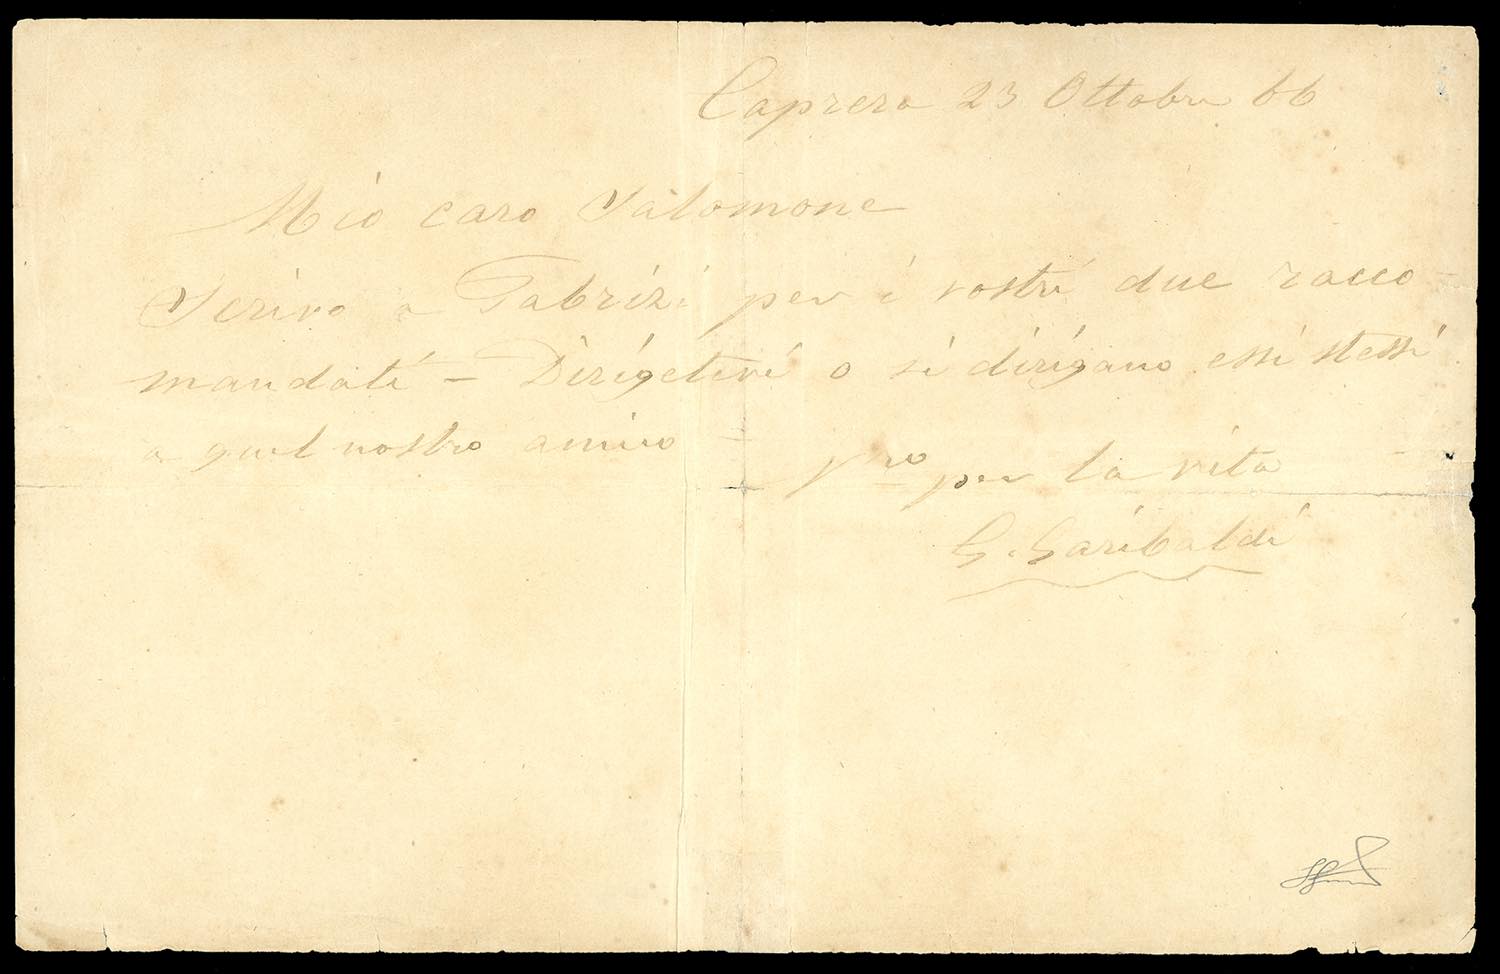 Caprera 23 Ottobre 66
Mio caro Salomone
Scrivo a Fabrizi per i vostri due racco-
mandati – Dirigetevi o si dirigano essi stessi
a quel nostro amico
Vro per la vita
G. Garibaldi